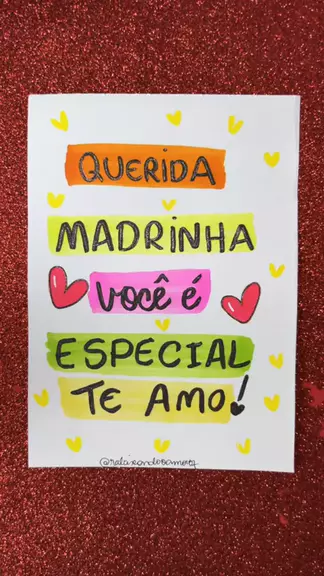 QUERIDA
MADRINHA
você é
ESPECIAL
TE AMO!